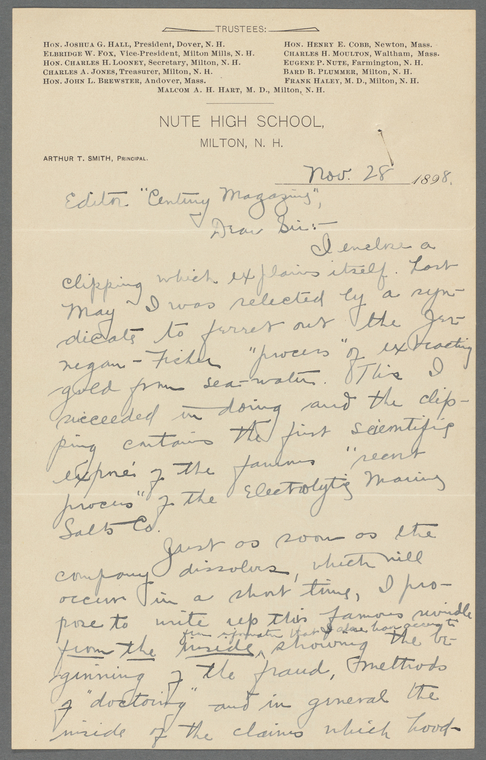 TRUSTEES:
HON. JOSHUA G. HALL, President, Dover, N. H.
ELBRIDGE W. FOX, Vice-President, Milton Mills, N. H.
HON. CHARLES H. LOONEY, Secretary, Milton, N. H.
CHARLES A. JONES, Treasurer, Milton, N. H.
HON. JOHN L. BREWSTER, Andover, Mass.
HON. HENRY E. COBB, Newton, Mass.
CHARLES H. MOULTON, Waltham, Mass.
EUGENE P. NUTE, Farmington, N. H.
BARD B. PLUMMER, Milton, N. H.
FRANK HALEY, M. D., Milton, N. H.
MALCOM A. H. HART, M. D., Milton, N. H.
NUTE HIGH SCHOOL,
MILTON, N. H.
ARTHUR T. SMITH, PRINCIPAL.
Nov. 28 1898.
Editor "Century Magazine",
Dear Sir:-
I enclose a
clipping which explains itself. Last
May I was selected by a syn-
dicate to ferret out the Jer-
negan-Fisher "process" of extracting
gold from sea-water. This I
succeeded in doing and the clip-
ping contains the first scientific
exposé of the famous "secret
process" of the Electrolytic Marine
Salts Co.
Just as soon as the
company dissolves, which will
occur in a short time, I pro-
pose to write up this famous swindle
from information that I alone have
from the inside, showing the be-
ginning of the fraud, methods
of "doctoring" and in general the
inside of the claims which hood-